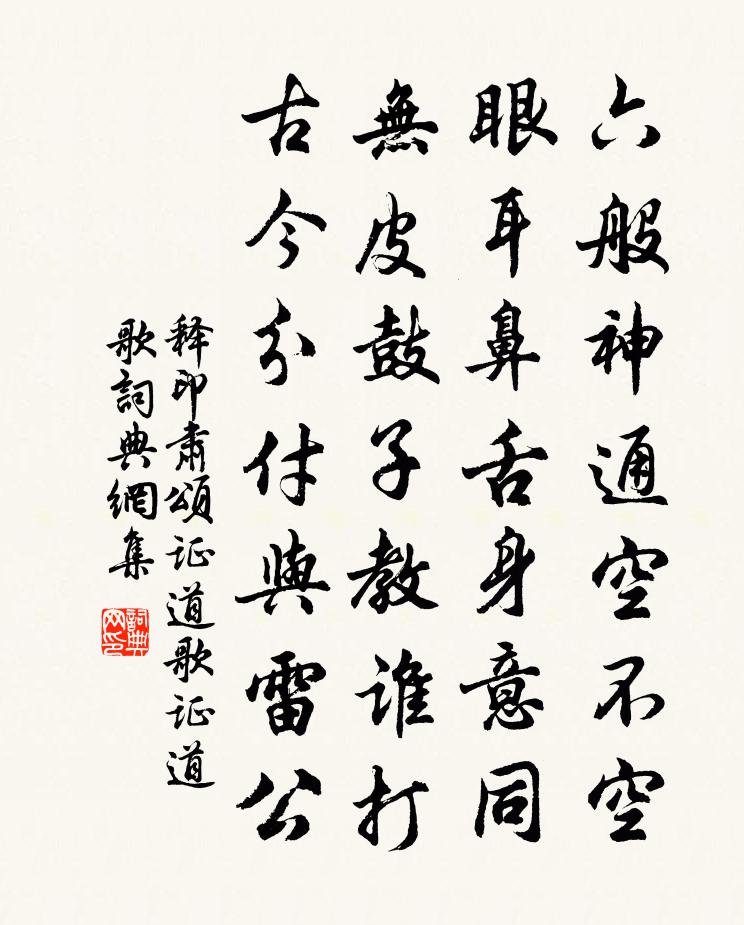 六般神通空不空
眼耳鼻舌身意同
無皮鼓子教誰打
古今分付與雷公
释印肃頌证道歌证道
歌詞典網集
詞典
网印